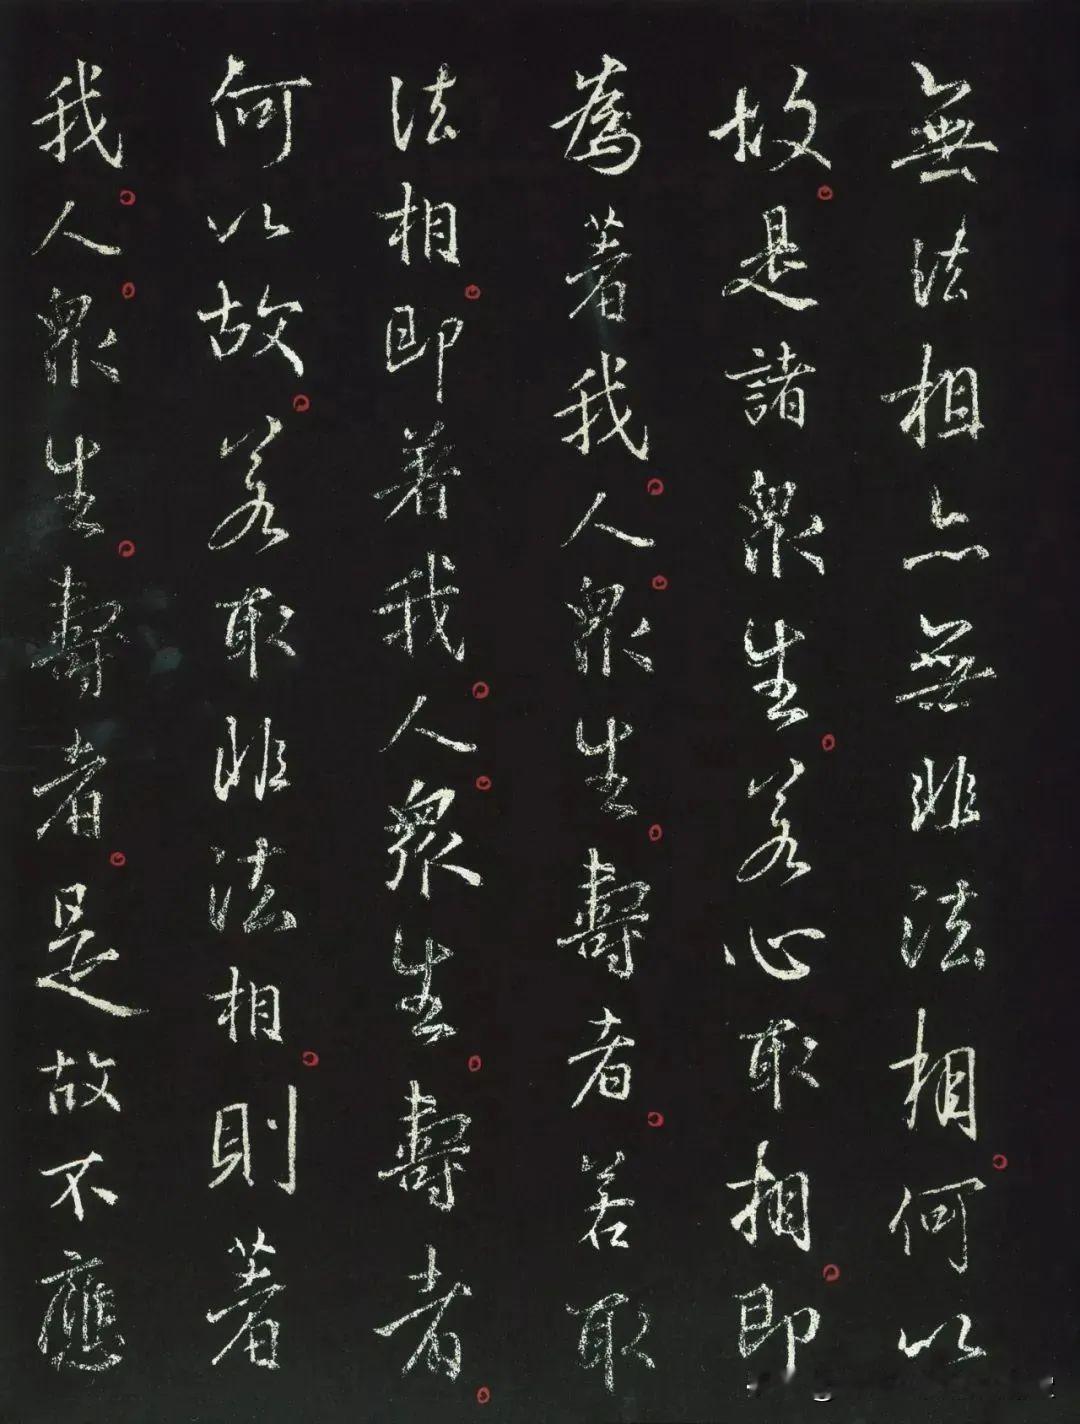 無法相亦無非法相何以
故是諸眾生若心取相即
為著我人眾生壽者若取
法相即著我人眾生壽者
何以故若取非法相則著
我人眾生壽者是故不應